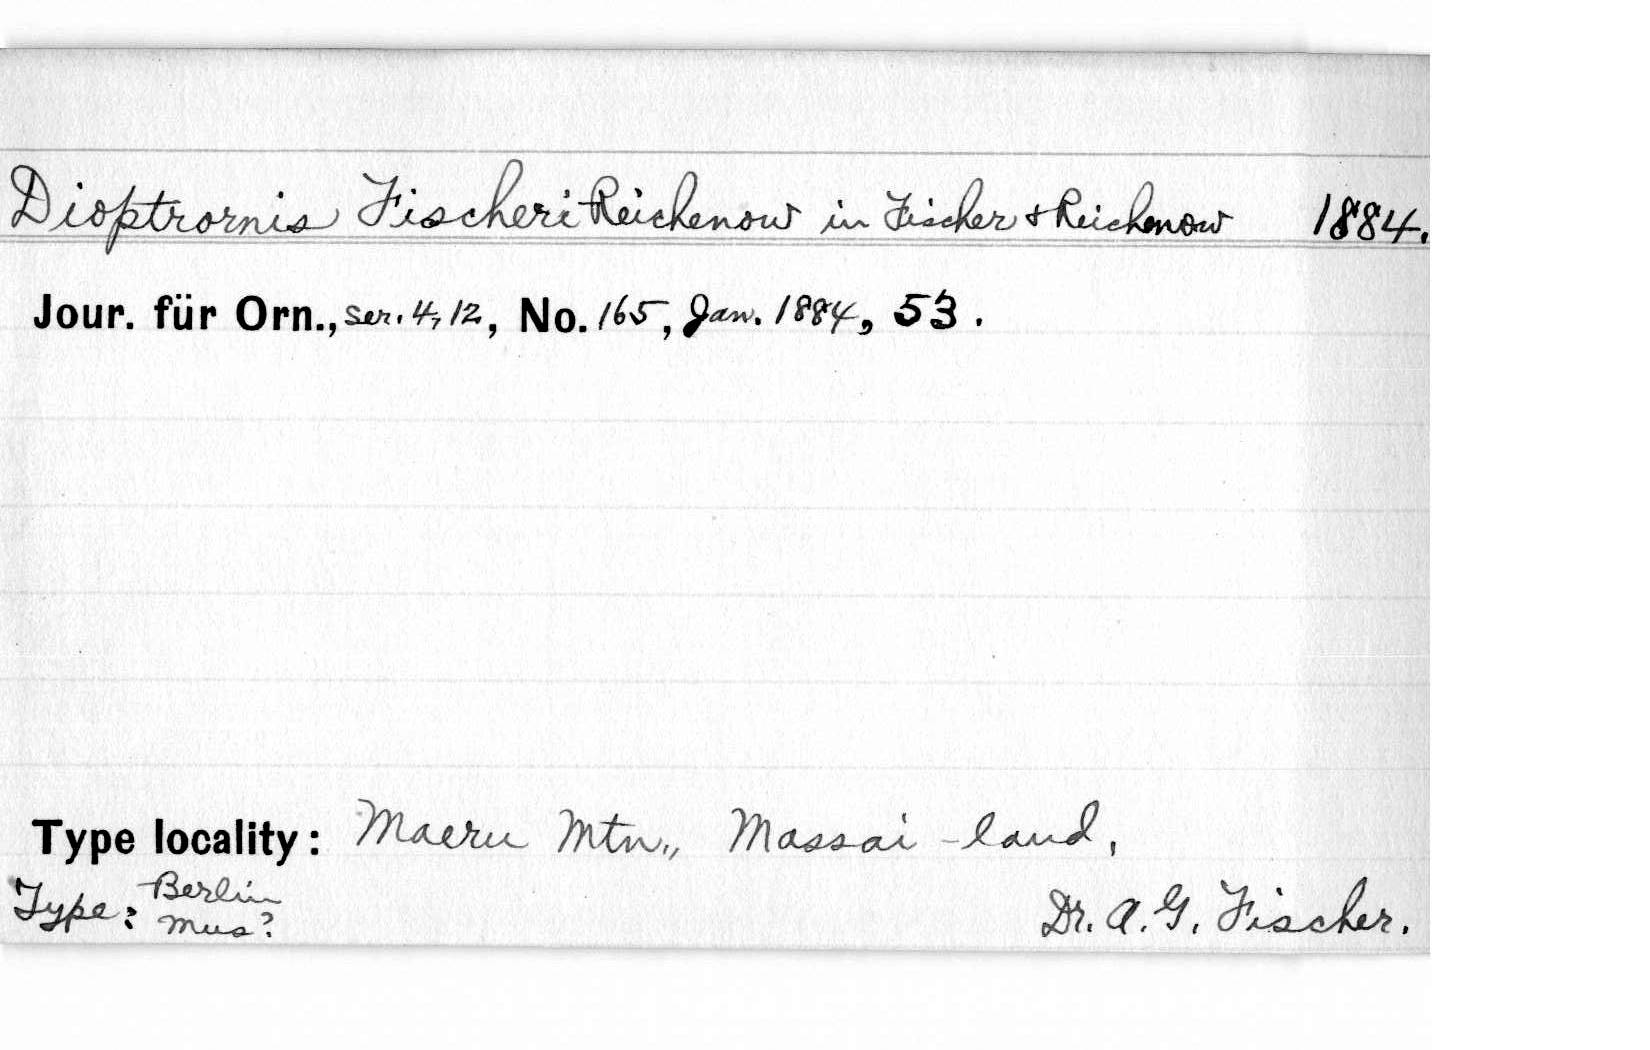 Dioptrornis Fischeri Reichenow in Fischer & Reichenow 1884.
Jour. für Orn., ser. 4, 12, No. 165, Jan. 1884, 53.
Type locality: Maeru Mtn., Massai-land,
Type: Berlin Mus? Dr. A. G. Fischer.